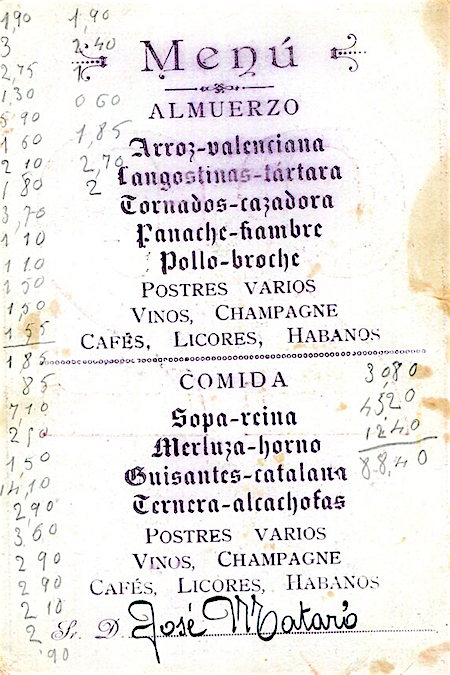 Menú
ALMUERZO
Arroz-valenciana
Langostinas-tártara
Tornados-cazadora
Panache-fiambre
Pollo-broche
POSTRES VARIOS
VINOS, CHAMPAGNE
CAFÉS, LICORES, HABANOS
COMIDA
Sopa-reina
Merluza-horno
Guisantes-catalana
Ternera-alcachofas
POSTRES VARIOS
VINOS, CHAMPAGNE
CAFÉS, LICORES, HABANOS
Sr. D. José Mataró
1,90
3
2,75
1,30
5 90
1 60
2 10
1 80
3,70
1 10
1 10
1,50
1 55
1 85
85
7,10
2 50
1,50
14,10
2,90
3,60
2 90
2 90
2 10
2
90
1,90
2 40
1
0 60
1,85
2,70
2
30 80
45 20
12 40
88,40